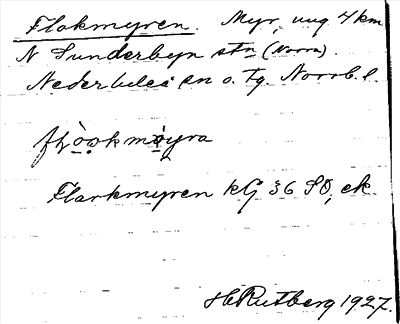 Flakmyren. Myr, ung 4 km
N Sunderbyn stn (Norra).
Nederluleå sn o. tg. Norrb. l.
Flarkmyren kG 36 SO, ek.
H Rutberg 1927.